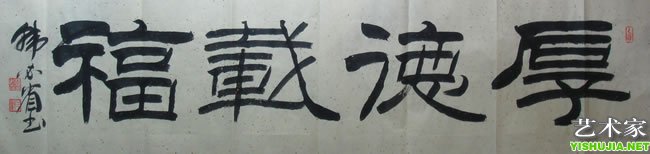 厚德載福
艺术家
YISHUJIA.NET